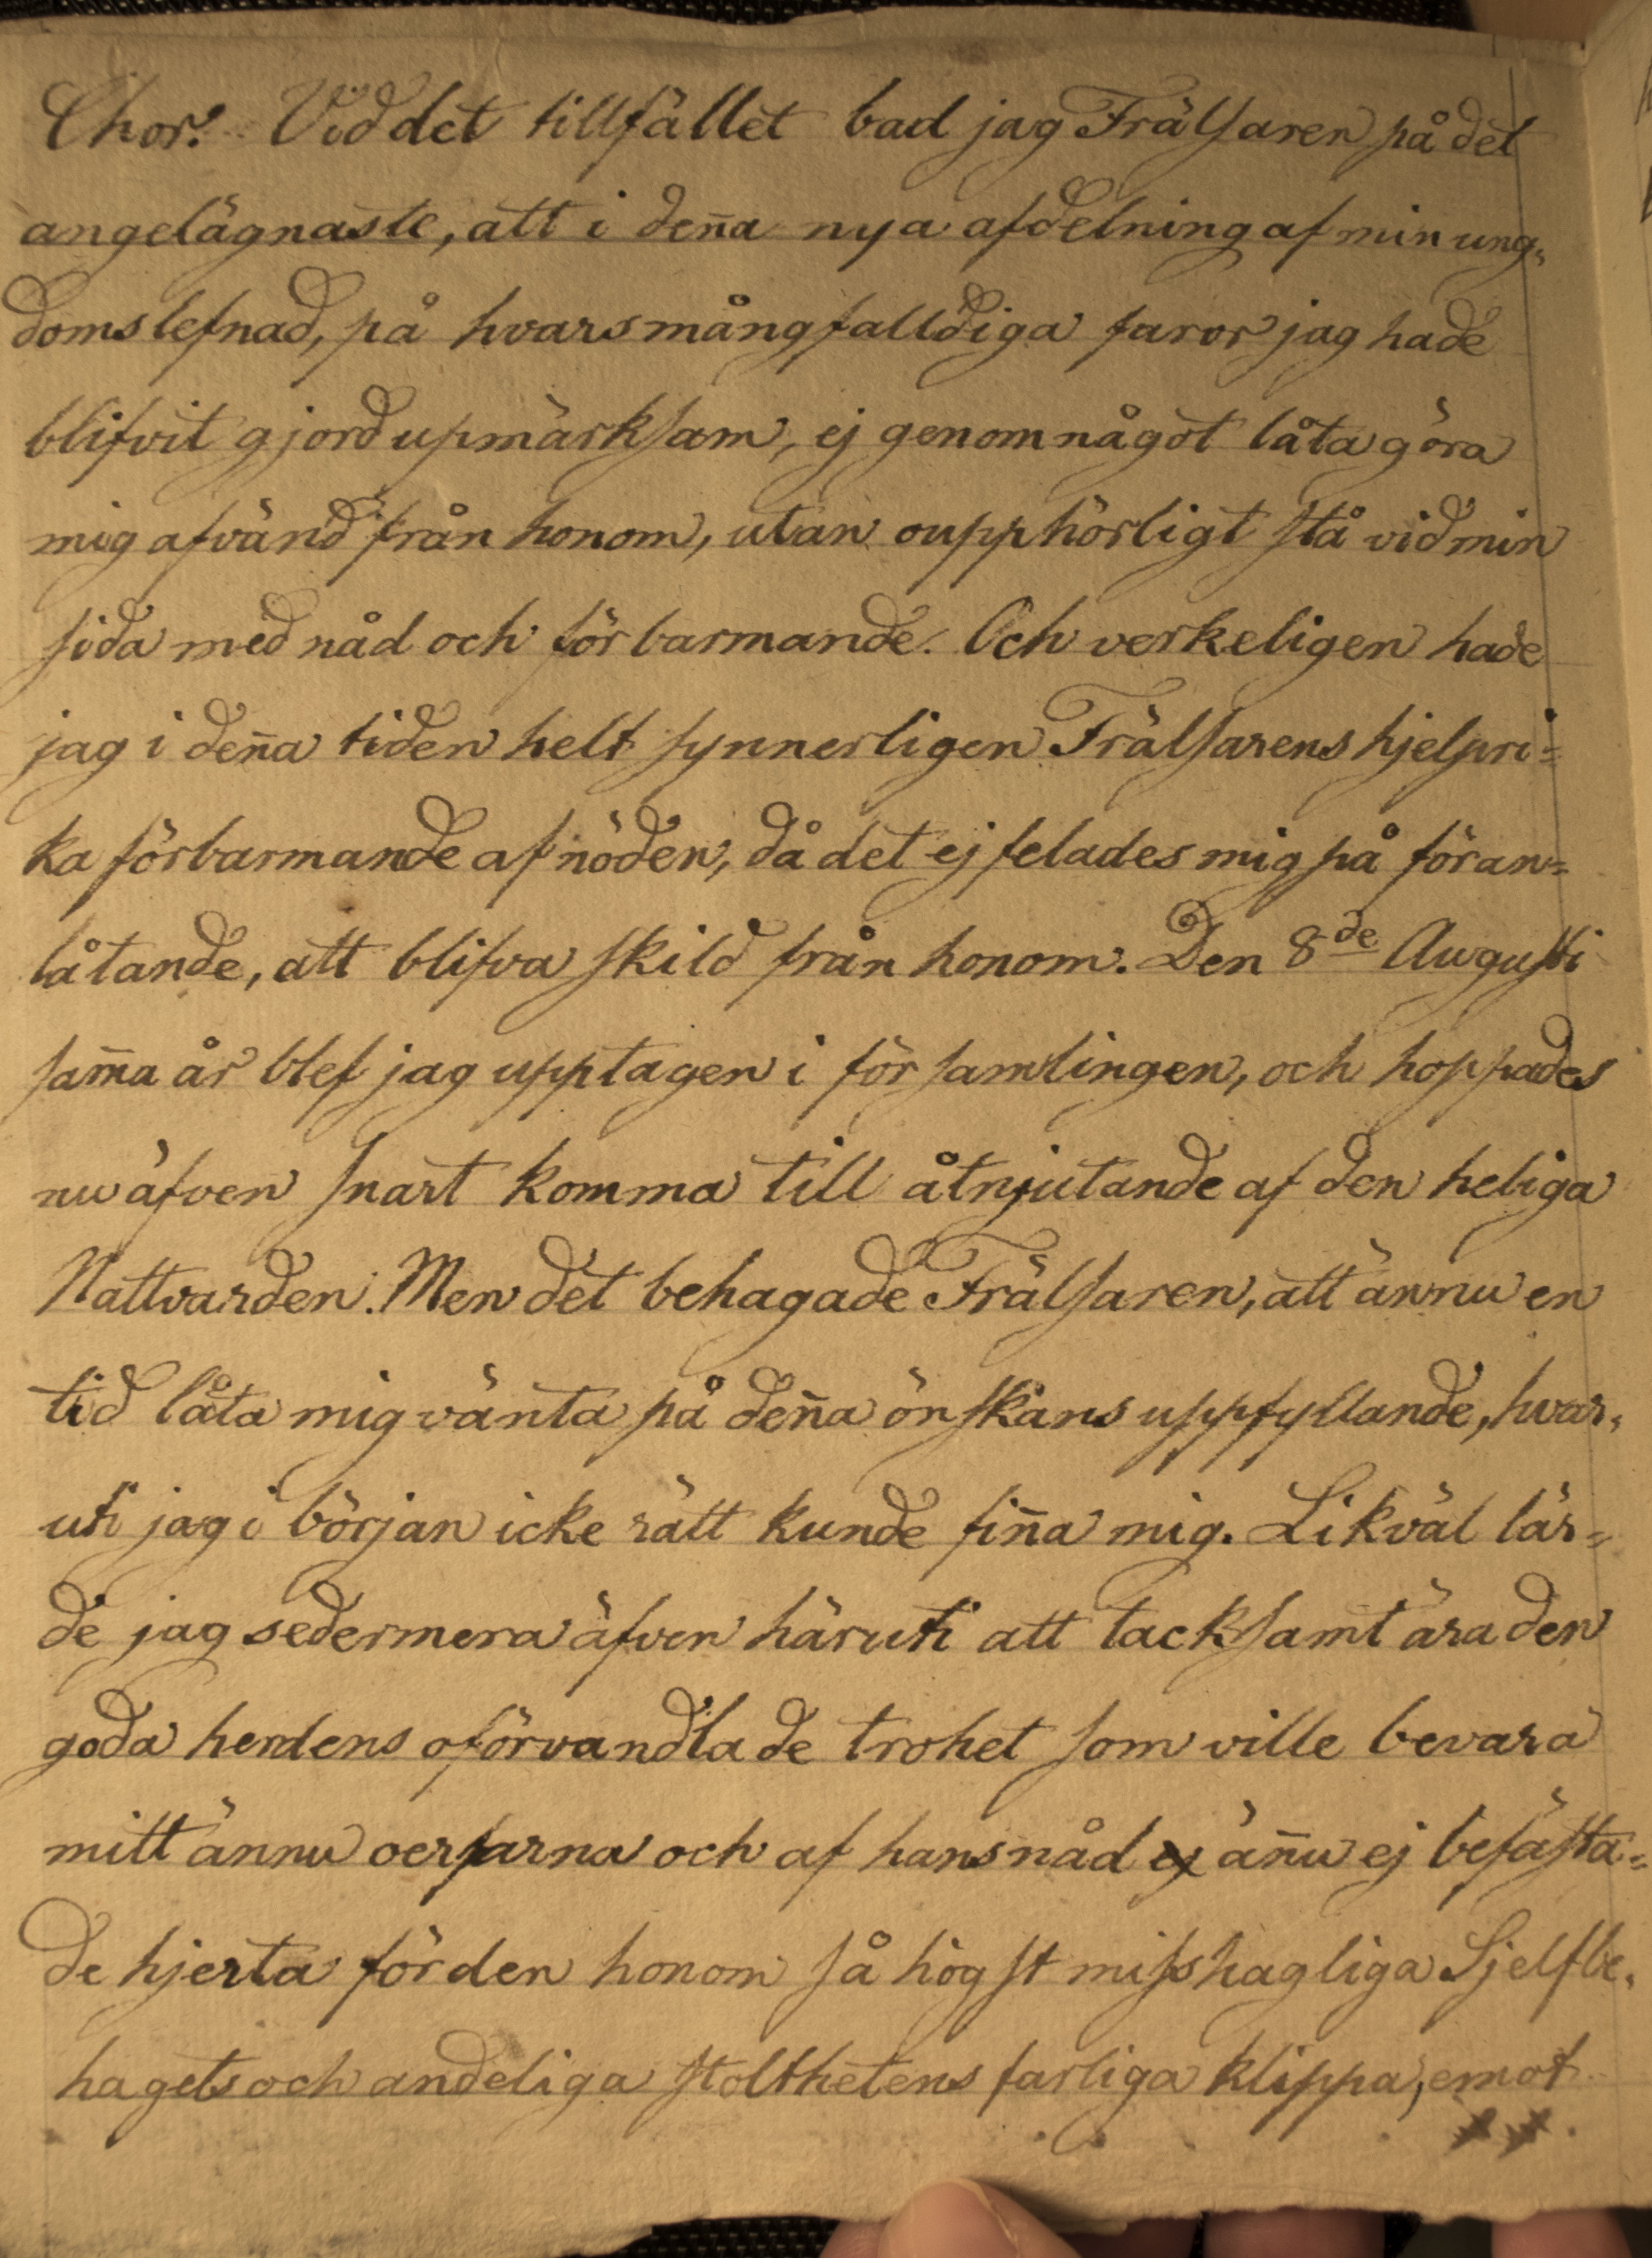 Chor. Vid det tillfället bad jag Frälsaren på det
angelägnaste, att i den̄a nya afdelning af min ung„
domslefnad, på hvars mångfalldiga faror jag hade
blifvit gjord upmärksam, ej genom något låta göra
mig afvänd från honom, utan oupphörligt stå vid min
sida med nåd och förbarmande. Och verkeligen hade
jag i den̄a tiden helt synnerligen Frälsarens hjelpri=
ka förbarmande af nöden, då det ej felades mig på föran=
låtande, att blifva skild från honom. Den 8de Augusti
sam̄a år blef jag upptagen i församlingen, och hoppades
nu äfven snart komma till åtnjutande af den heliga
Nattvarden. Men det behagade Frälsaren, att ännu en
tid låta mig vänta på den̄a önskans uppfyllande, hvar„
uti jag i början icke rätt kunde fin̄a mig. Likväl lär=
de jag sedermera äfven häruti att tacksamt ära den
goda herdens oförvandlade trohet som ville bevara
mitt ännu oerfarna och af hans nåd ej än̄u ej befästa=
de hjerta för den honom så högst misshagliga Sjelfbe„
hagets och andeliga stolthetens farliga klippa, emot